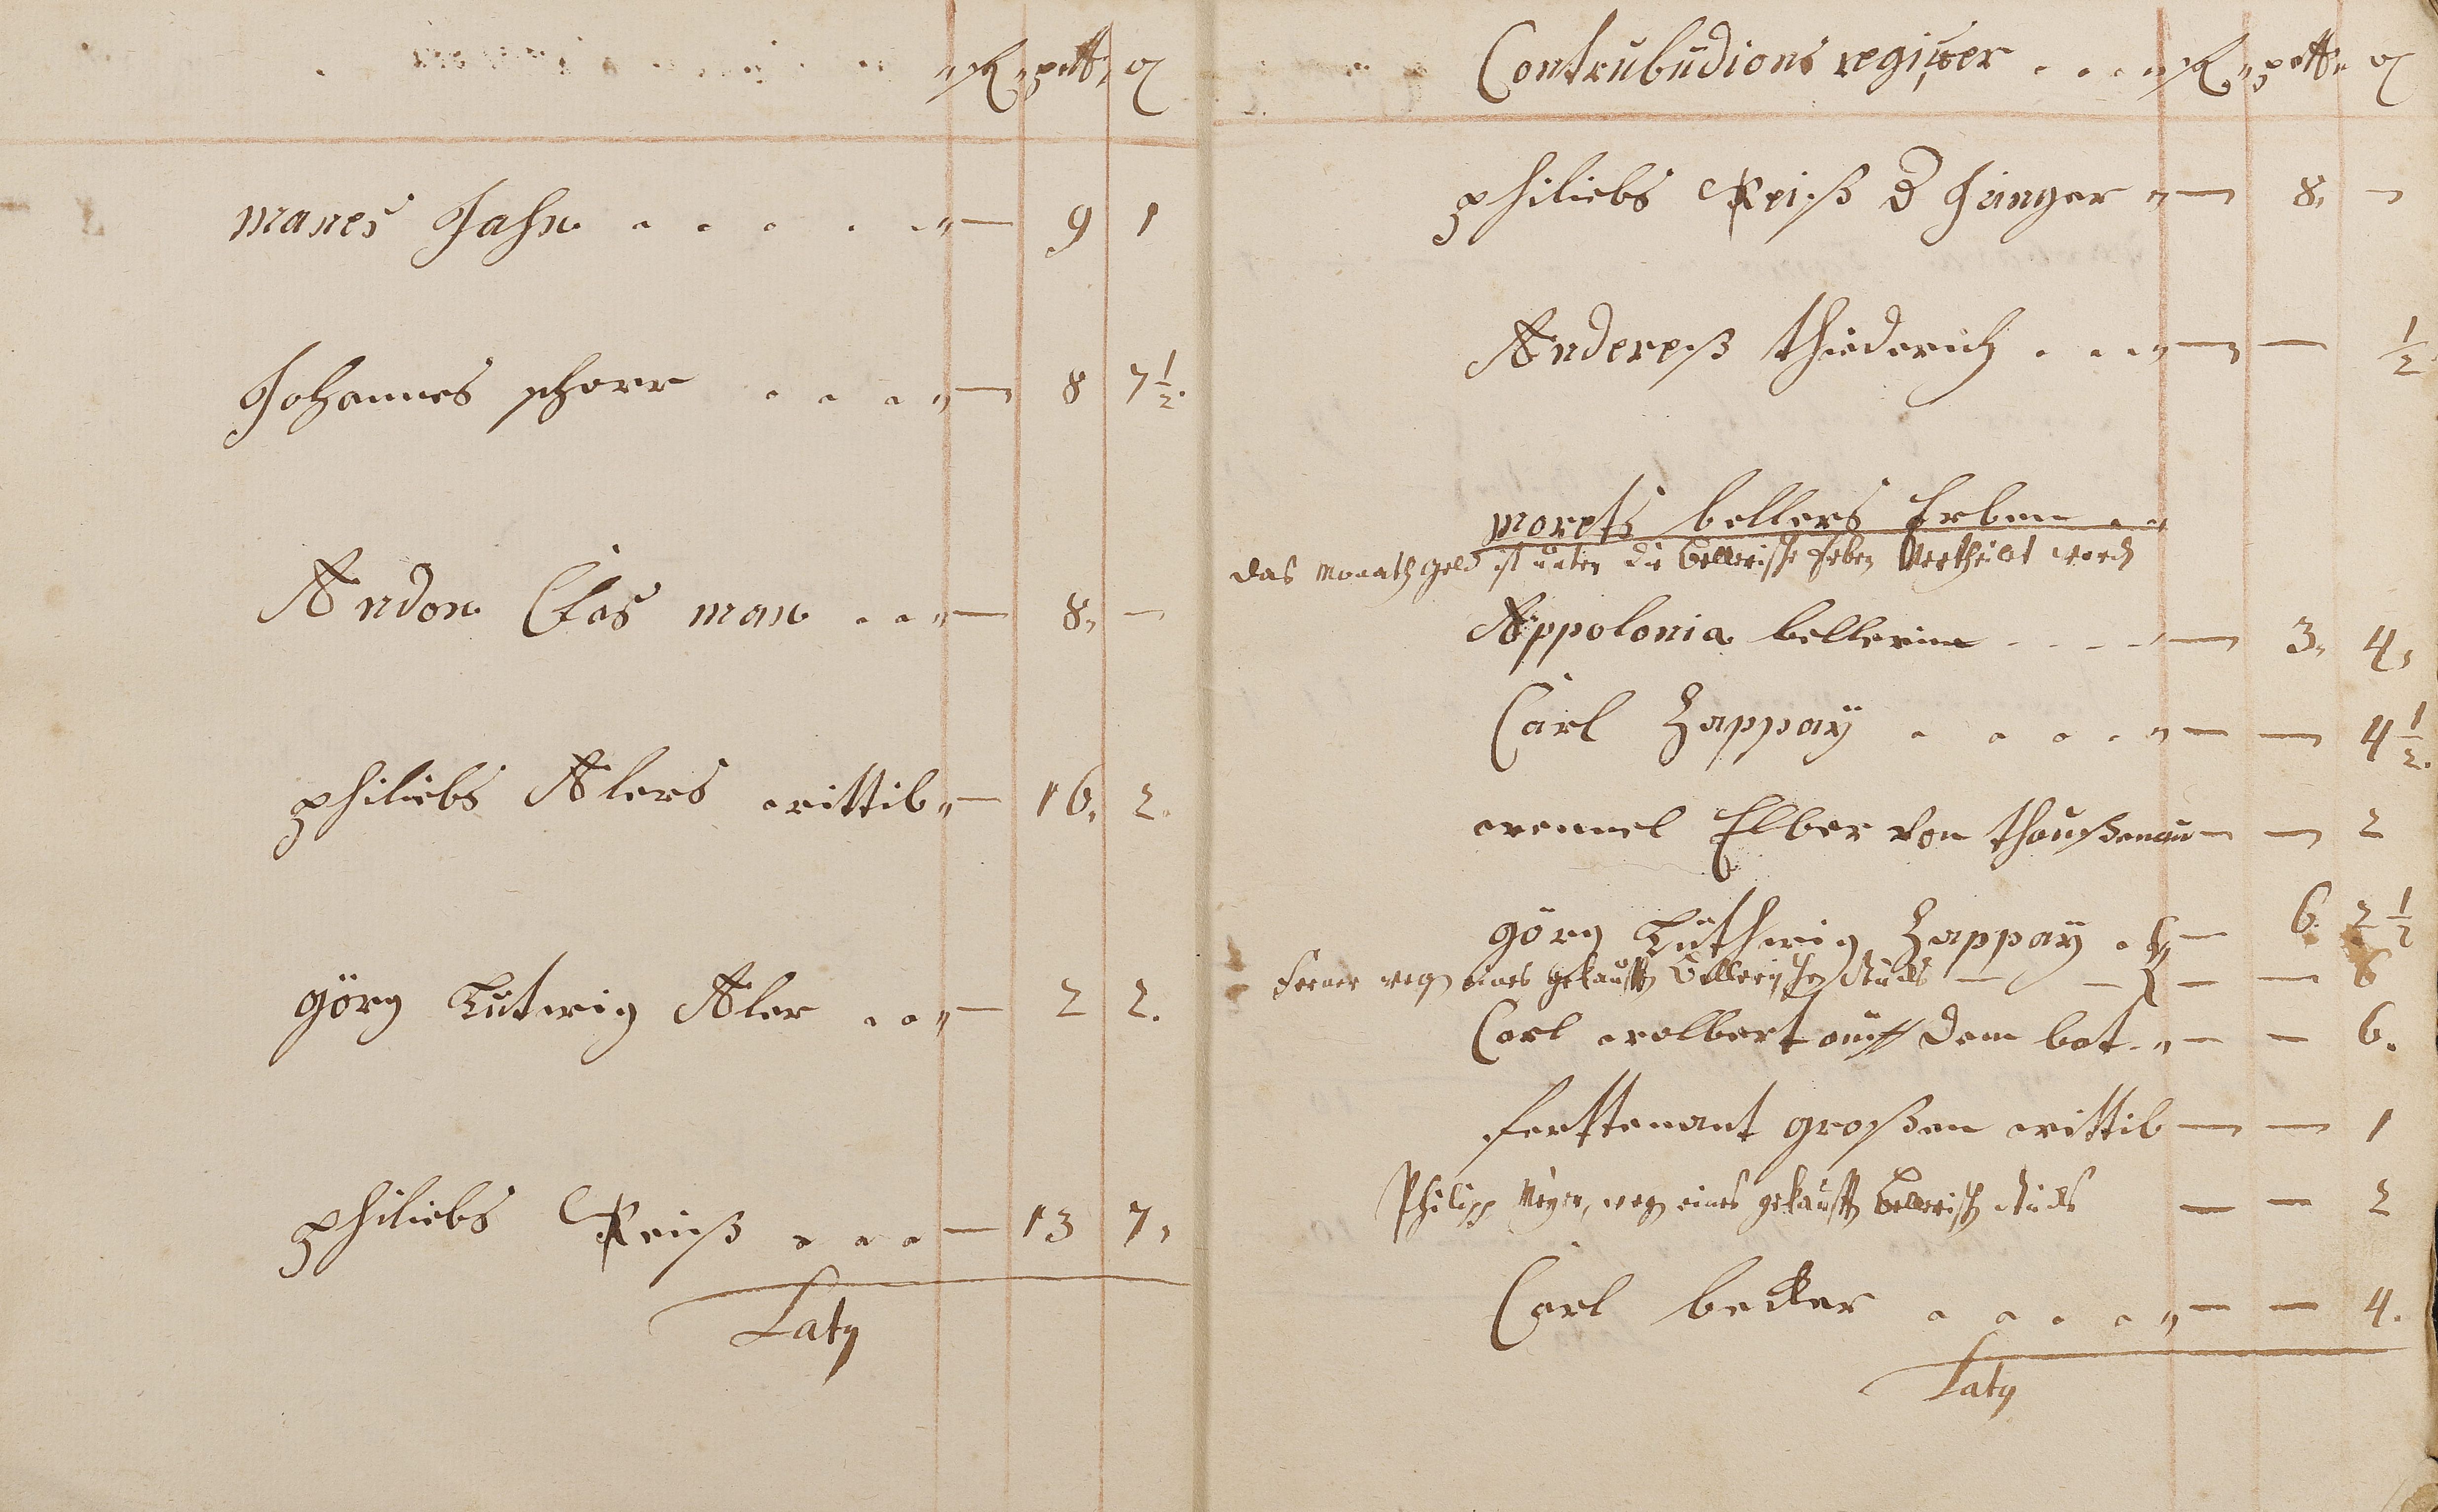 R pett ₰
manes Jahn . . . . . — 9 1
Johannes schorr . . . . — 8 7½.
Andon Clos man . . . — 8. —
philiebs Alers wittib — 16. 2.
görg Lutwig Aler . . . — 2 2.
philiebs Reiß . . . — 13 7.
Laty
Contrubudions register . . . R pett ₰
philiebs Reiß D Jünger — 8. —
Andereß thiederich . . . — — ½
morets bellers Erben . .
Das Monathgeld ist unter die Bellerische Erben Vertheilt word
Appolonia bellerin . . . . — 3. 4.
Carl Zappaÿ . . . . — — 4½.
wennel Elber von thaußenau — — 2
görg Luthwig Zappaÿ . — 6. 2½
Ferner weg eines gekaufft Bellerischen Stücks — — — — 6
Carl wolbert auff dem bot . — — 6.
ferttenant großen wittib — — 1
Philipp Meyer, weg eines gekaufft Bellerisch Stücks — — 2
Carl becker . . . . — — 4.
Laty